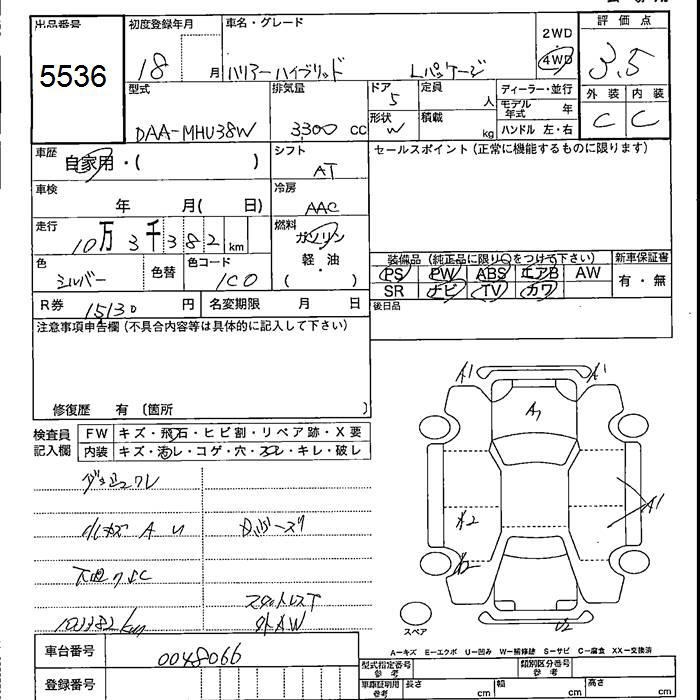 出品番号
5536
初度登録年月
18 月
車名・グレード
ハリアーハイブリッド Lパッケージ
2WD
4WD
評価点
3.5
外装 内装
C C
型式
DAA-MHU38W
排気量
3300 cc
ドア
5
形状
W
定員
人
積載
kg
ディーラー・並行
モデル年式 年
ハンドル 左・右
車歴
自家用・( )
シフト
AT
セールスポイント(正常に機能するものに限ります)
車検
年 月( 日)
冷房
AAC
走行
10万3千382km
燃料
ガソリン
軽・油
( )
色
シルバー
色替
色コード
1C0
装備品(純正品に限り○をつけて下さい)
PS PW ABS エアB AW
SR ナビ TV カワ
新車保証書
有・無
R券 15130 円
名変期限 月 日
後日品
注意事項申告欄(不具合内容等は具体的に記入して下さい)
修復歴 有(箇所 )
検査員記入欄
FW キズ・飛石・ヒビ割・リペア跡・X要
内装 キズ・汚レ・コゲ・穴・スレ・キレ・破レ
小キズ A U
103382km
外AW
A1 A1
A1
A2
A2
U2
スペア
A−キズ E−エクボ U−凹み W−補修跡 S−サビ C−腐食 XX−交換済
車台番号
0048066
登録番号
型式指定番号
参考
類別区分番号
参考
車庫証明用
参考
長さ cm
幅 cm
高さ cm